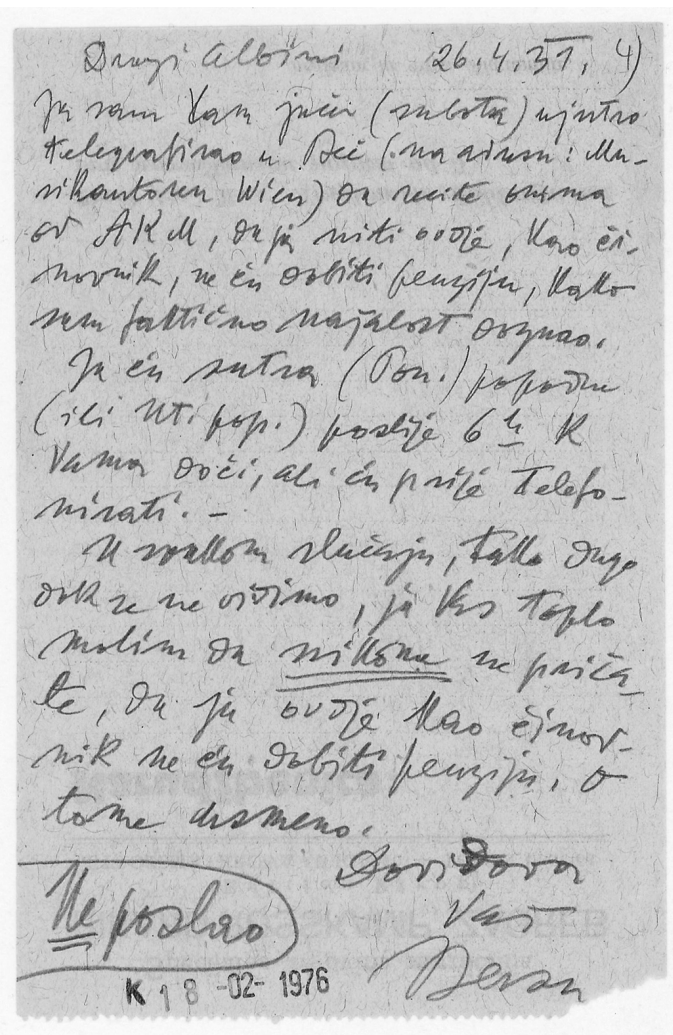 Dragi Albini 26.4.31, 4)
Ja sam Vam jučer (subota) ujutro
telegrafirao u Beč (na : Mu-
sikautoren Wien) da recite onima
od AKM, da ja niti ovdje, kao či-
novnik, ne ću dobiti penziju, kako
sam faktično najalost doznao.
Ja ću sutra (Pon.) popodne
(ili Ut. pop.) poslije 6 h k
Vama doći, ali ću prije telefo-
nirati. –
U svakom slučaju, tako dugo
dok se ne vidimo, ja Vas toplo
molim da nikome ne priča-
te, da ja ovdje kao činov-
nik ne ću dobiti penziju. O
tome usmeno.
Dovidova
Vaš
Bersa
Ne poslao
K 18 -02- 1976